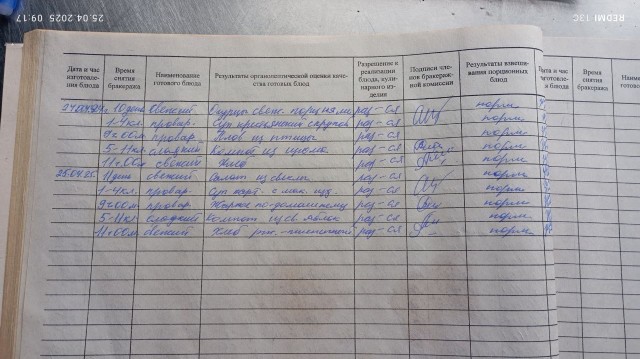 25.04.2025 09:17
REDMI 13C
Дата и час изготовления блюда
Время снятия бракеража
Наименование готового блюда
Результаты органолептической оценки качества готовых блюд
Разрешение к реализации блюда, кулинарного изделия
Подписи членов бракеражной комиссии
Результаты взвешивания порционных блюд
Дата и час изготовления блюда
Время снятия бракеража
10 день свежий Огурцы свеж. порциями раз-ся норм
1-4кл. провар. Суп раз-ся норм
9ч00м провар. Плов из птицы раз-ся норм
5-11кл сладкий компот из изюма раз-ся норм
11ч00м свежий Хлеб раз-ся норм
25.04.25. 11 день свежий Салат из свеклы раз-ся норм
1-4кл. провар. Суп карт. с мак. изд. раз-ся норм
9ч00м провар Жаркое по-домашнему раз-ся норм
5-11кл сладкий компот из св. яблок раз-ся норм
11ч00м свежий Хлеб рж.-пшеничный раз-ся норм